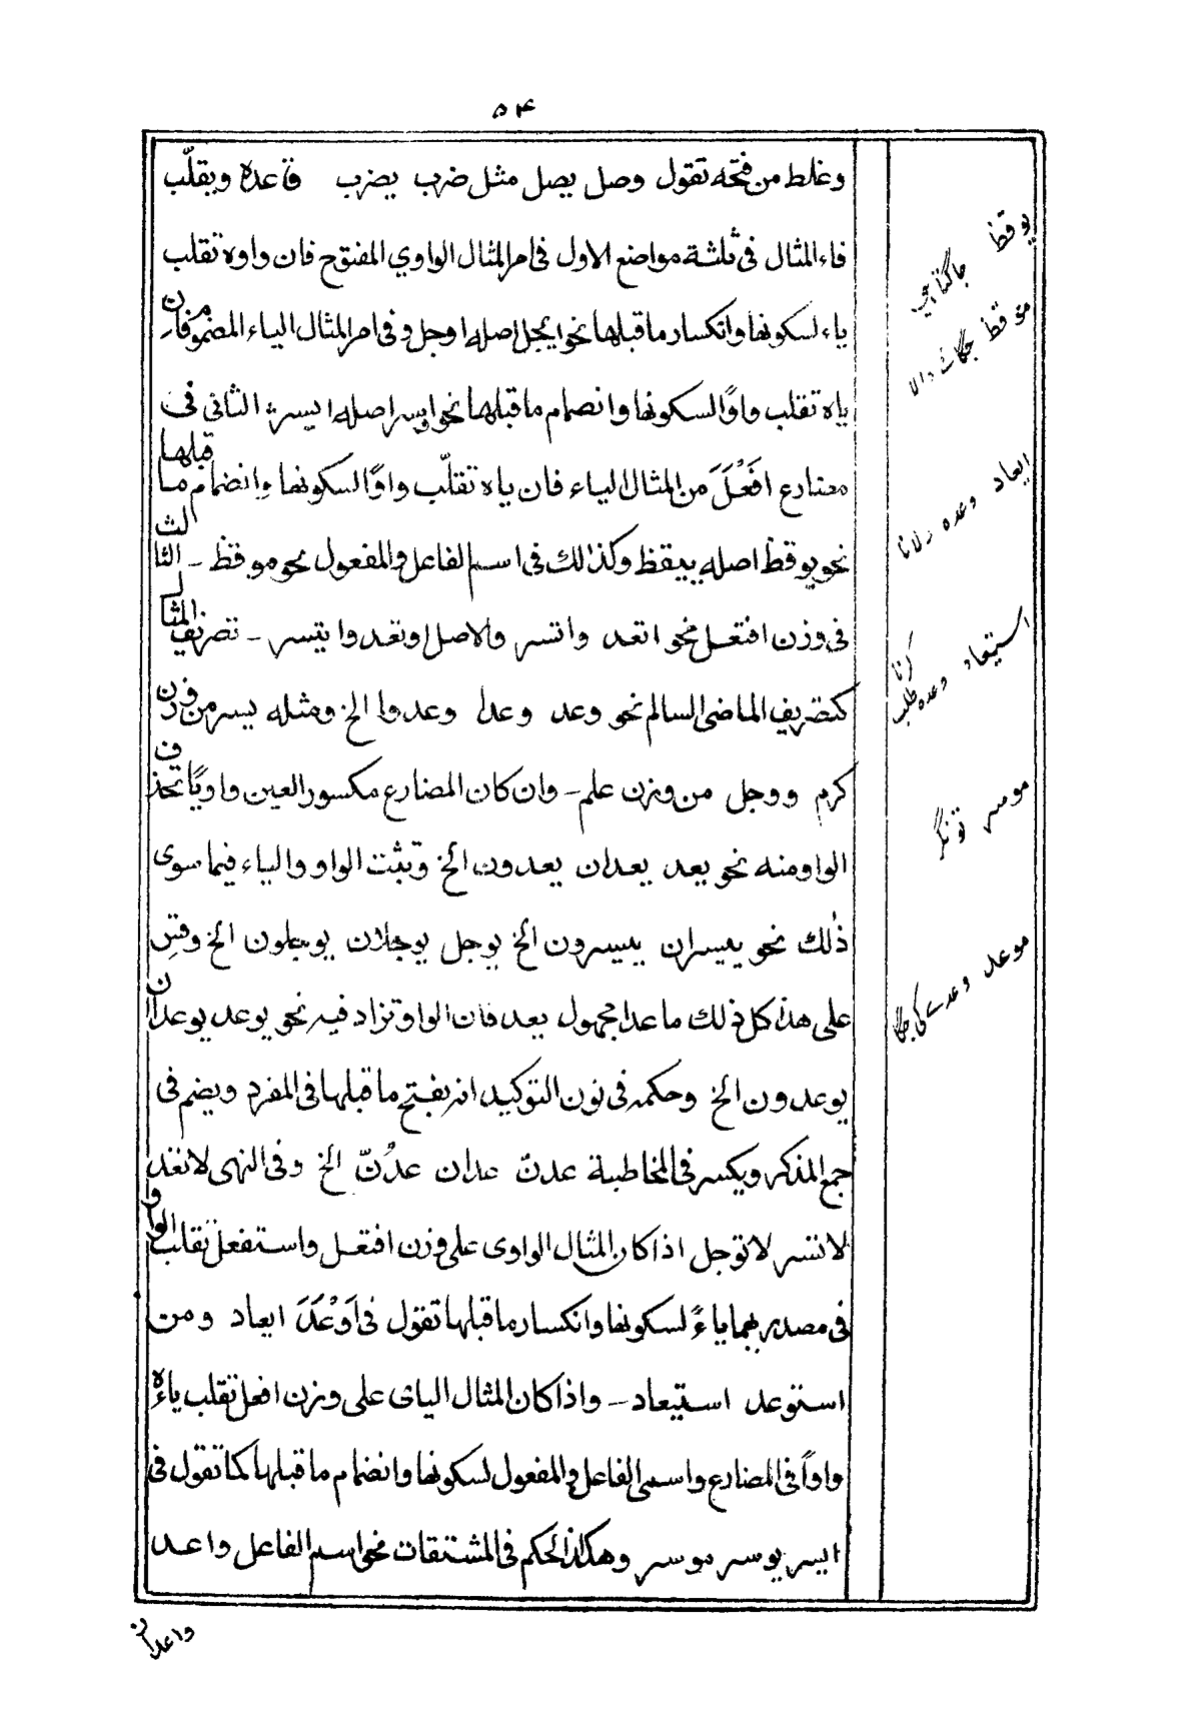 ۵۴
وغلط من فتحه تقول وصل يصل مثل ضرب يضرب قاعدة ويقلّب
فاء المثال فى ثلثة مواضع الاول فى امر المثال الواوي المفتوح فان واوه تقلب
ياء لسكونها وانكسار ما قبلها نحو ايجل اصله اوجل وفى امر المثال الياء المضموم فان
ياه تقلب واوًا لسكونها وانضمام ما قبلها نحو اوسر اصله ايسر، الثانى فى
مضارع افَعْلَ من المثال الياء فان ياه تقلّب واوًا لسكونها وانضمام ما قبلها
نحو يوقظ اصله ييقظ وكذالك فى اسم الفاعل والمفعول نحو موقظ ـ الثالث
فى وزن افتعل نحو اتعد واتسر والاصل اوتعد وايتسر ـ تصريف المثال
كتصريف الماضى السالم نحو وعد وعدا وعدوا الخ ومثله يسر من وزن
كرم ووجل من وزن علم ـ وان كان المضارع مكسور العين واويًا تحذف
الواو منه نحو يعد يعدان يعدون الخ وتثبت الواو والياء فيما سوى
ذٰلك نحو ييسران ييسرون الخ يوجل يوجلان يوجلون الخ وقس
على هذا كل ذلك ما عدا مجهول يعد فان الواو تزاد فيه نحو يوعد يوعدان
يوعدون الخ وحكمه فى نون التوكيد انه يفتح ما قبلها فى المفرد ويضم فى
جمع المذكر ويكسر فى المخاطبة عدنّ عدان عدُنّ الخ وفى النهى لاتعد
لاتسر لاتوجل اذا كان المثال الواوى على وزن افتعل واستفعل تقلب الواو
فى مصدريهما ياءً لسكونها وانكسار ما قبلها تقول فى اَوْعَدَ ايعاد ومن
استوعد استيعاد ـ واذا كان المثال الياى على وزن افعل تقلب ياءه
واواً فى المضارع واسمى الفاعل والمفعول لسكونها وانضمام ما قبلها كما تقول فى
ايسر يوسر موسر وهكذا الحكم فى المشتقات نحو اسم الفاعل واعد
واعدان
يوقظ جاگتا ہے
موقظ جگانے والا
ايعاد وعده دلانا
استيعاد وعده طلب کرنا
موسر تونگر
موعد وعدے کی جگہ